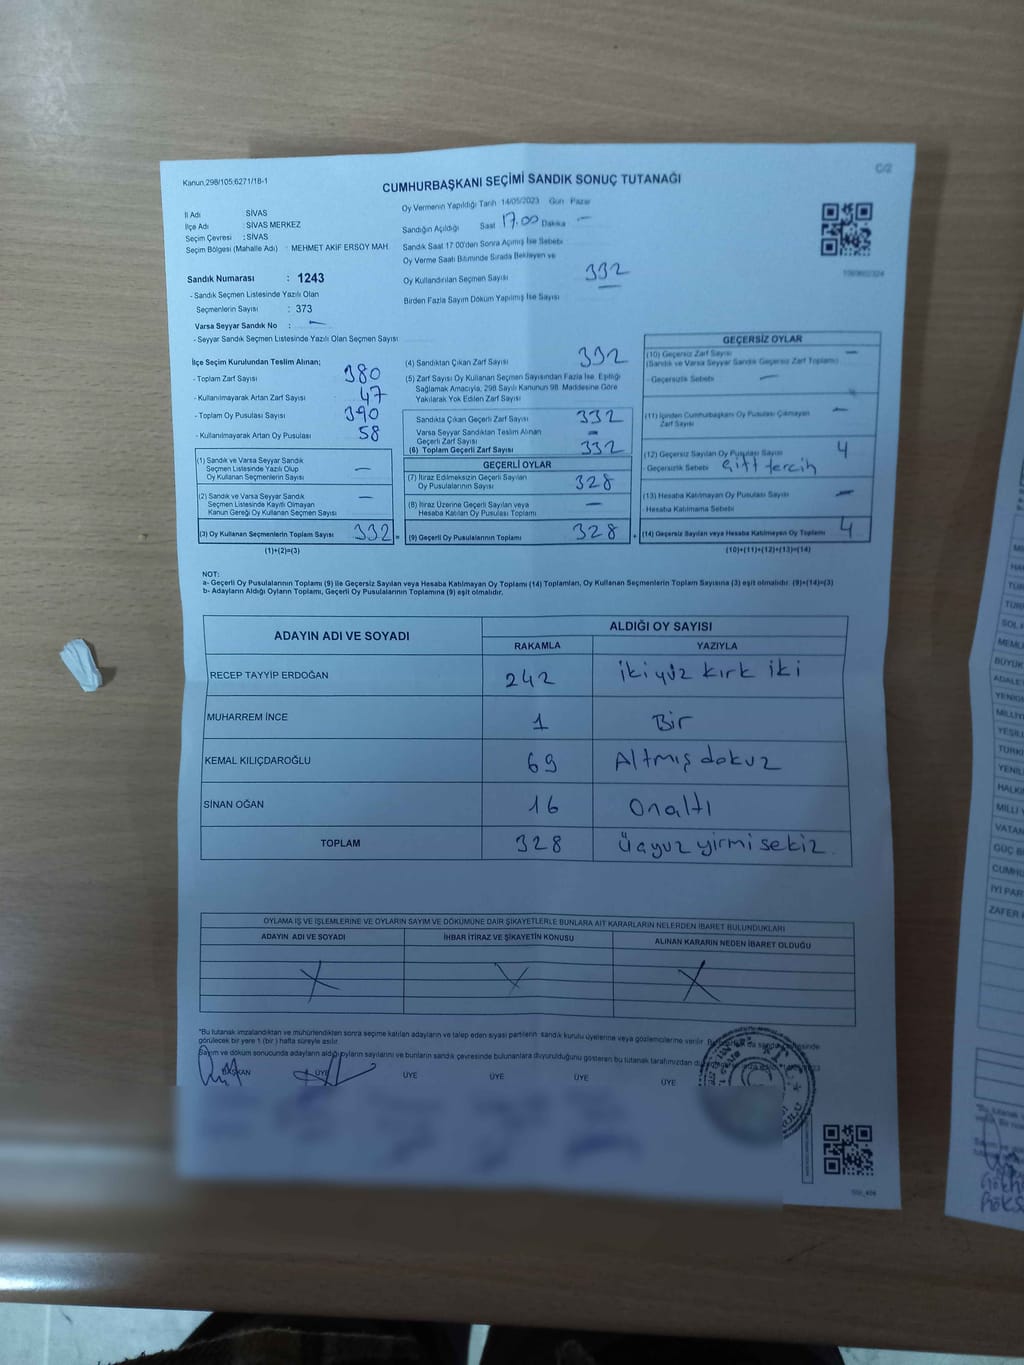 Kanun.298/105:6271/18-1
C/2
CUMHURBAŞKANI SEÇİMİ SANDIK SONUÇ TUTANAĞI
İl Adı : SİVAS
İlçe Adı : SİVAS MERKEZ
Seçim Çevresi : SİVAS
Seçim Bölgesi (Mahalle Adı) : MEHMET AKİF ERSOY MAH.
Sandık Numarası : 1243
- Sandık Seçmen Listesinde Yazılı Olan
Seçmenlerin Sayısı : 373
Varsa Seyyar Sandık No : —
- Seyyar Sandık Seçmen Listesinde Yazılı Olan Seçmen Sayısı
Oy Vermenin Yapıldığı Tarih 14/05/2023 Gün Pazar
Sandığın Açıldığı Saat 17.00 Dakika —
Sandık Saat 17.00'den Sonra Açılmış İse Sebebi
Oy Verme Saati Bitiminde Sırada Bekleyen ve
Oy Kullandırılan Seçmen Sayısı 332
Birden Fazla Sayım Döküm Yapılmış İse Sayısı
İlçe Seçim Kurulundan Teslim Alınan;
- Toplam Zarf Sayısı 380
- Kullanılmayarak Artan Zarf Sayısı 47
- Toplam Oy Pusulası Sayısı 390
- Kullanılmayarak Artan Oy Pusulası 58
(1) Sandık ve Varsa Seyyar Sandık
Seçmen Listesinde Yazılı Olup
Oy Kullanan Seçmenlerin Sayısı —
(2) Sandık ve Varsa Seyyar Sandık
Seçmen Listesinde Kayıtlı Olmayan
Kanun Gereği Oy Kullanan Seçmen Sayısı —
(3) Oy Kullanan Seçmenlerin Toplam Sayısı 332 =
(1)+(2)=(3)
(4) Sandıktan Çıkan Zarf Sayısı 332
(5) Zarf Sayısı Oy Kullanan Seçmen Sayısından Fazla İse, Eşitliği
Sağlamak Amacıyla, 298 Sayılı Kanunun 98. Maddesine Göre
Yakılarak Yok Edilen Zarf Sayısı
Sandıkta Çıkan Geçerli Zarf Sayısı 332
Varsa Seyyar Sandıktan Teslim Alınan
Geçerli Zarf Sayısı —
(6) Toplam Geçerli Zarf Sayısı 332
GEÇERLİ OYLAR
(7) İtiraz Edilmeksizin Geçerli Sayılan
Oy Pusulalarının Sayısı 328
(8) İtiraz Üzerine Geçerli Sayılan veya
Hesaba Katılan Oy Pusulası Toplamı —
(9) Geçerli Oy Pusulalarının Toplamı 328 +
GEÇERSİZ OYLAR
(10) Geçersiz Zarf Sayısı —
(Sandık ve Varsa Seyyar Sandık Geçersiz Zarf Toplamı)
- Geçersizlik Sebebi —
(11) İçinden Cumhurbaşkanı Oy Pusulası Çıkmayan
Zarf Sayısı —
(12) Geçersiz Sayılan Oy Pusulası Sayısı 4
- Geçersizlik Sebebi Çift tercih
(13) Hesaba Katılmayan Oy Pusulası Sayısı —
- Hesaba Katılmama Sebebi
(14) Geçersiz Sayılan veya Hesaba Katılmayan Oy Toplamı 4
(10)+(11)+(12)+(13)=(14)
NOT:
a- Geçerli Oy Pusulalarının Toplamı (9) ile Geçersiz Sayılan veya Hesaba Katılmayan Oy Toplamı (14) Toplamları, Oy Kullanan Seçmenlerin Toplam Sayısına (3) eşit olmalıdır. (9)+(14)=(3)
b- Adayların Aldığı Oyların Toplamı, Geçerli Oy Pusulalarının Toplamına (9) eşit olmalıdır.
ADAYIN ADI VE SOYADI
ALDIĞI OY SAYISI
RAKAMLA YAZIYLA
RECEP TAYYİP ERDOĞAN 242 iki yüz kırk iki
MUHARREM İNCE 1 Bir
KEMAL KILIÇDAROĞLU 69 Altmış dokuz
SİNAN OĞAN 16 Onaltı
TOPLAM 328 Üçyüz yirmi sekiz
OYLAMA İŞ VE İŞLEMLERİNE VE OYLARIN SAYIM VE DÖKÜMÜNE DAİR ŞİKAYETLERLE BUNLARA AİT KARARLARIN NELERDEN İBARET BULUNDUKLARI
ADAYIN ADI VE SOYADI
İHBAR İTİRAZ VE ŞİKAYETİN KONUSU
ALINAN KARARIN NEDEN İBARET OLDUĞU
*Bu tutanak imzalandıktan ve mühürlendikten sonra seçime katılan adayların ve talep eden siyasi partilerin sandık kurulu üyelerine veya gözlemcilerine verilir.
görülecek bir yere 1 (bir) hafta süreyle asılır.
Sayım ve döküm sonucunda adayların aldığı oyların sayılarını ve bunların sandık çevresinde bulunanlara duyurulduğunu gösteren bu tutanak tarafımızdan
BAŞKAN ÜYE ÜYE ÜYE ÜYE ÜYE